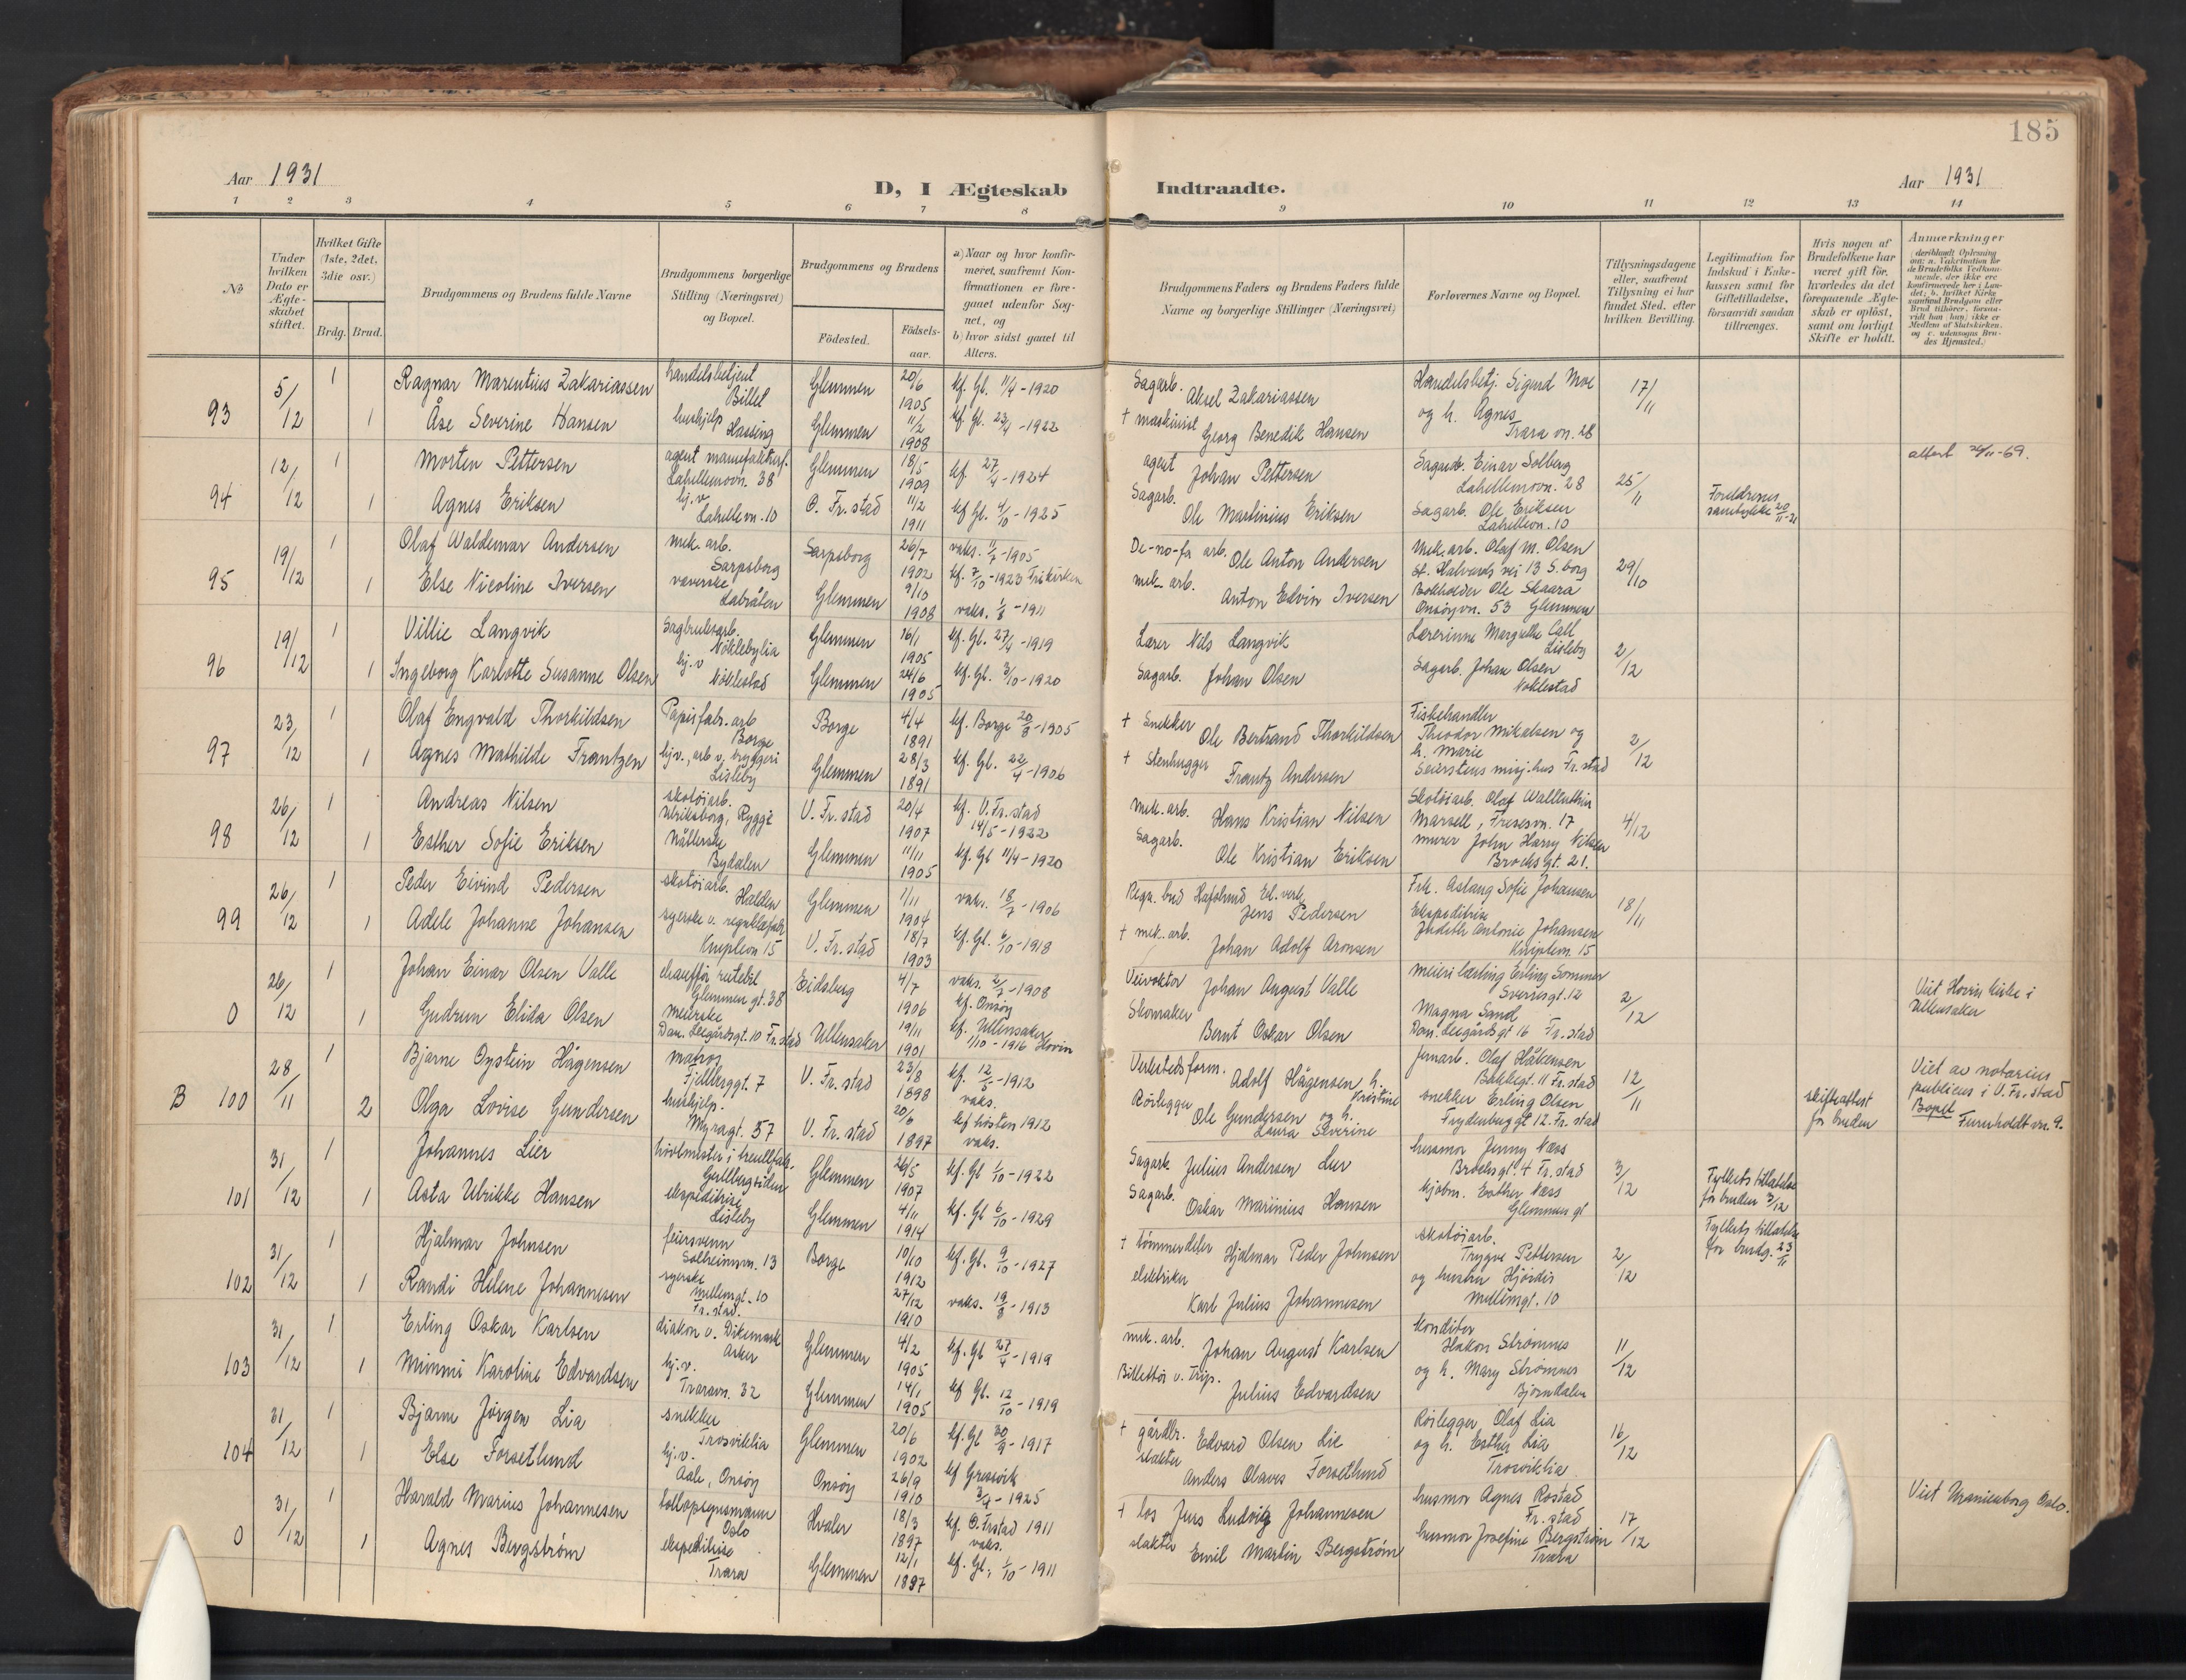 185
Aar 1931
D, I Ægteskab Indtraadte.
Aar 1931
1 2 3 4 5 6 7 8 9 10 11 12 13 14
№
Under hvilken Dato er Ægteskabet stiftet.
Hvilket Gifte (1ste, 2det, 3die osv.)
Brdg. Brud.
Brudgommens og Brudens fulde Navne
Brudgommens borgerlige Stilling (Næringsvei) og Bopæl.
Brudgommens og Brudens
Födested.
Födsels-aar.
a) Naar og hvor konfirmeret, saafremt Konfirmationen er foregaaet udenfor Sognet, og
b) hvor sidst gaaet til Alters.
Brudgommens Faders og Brudens Faders fulde Navne og borgerlige Stillinger (Næringsvei)
Forlovernes Navne og Bopæl.
Tillysningsdagene eller, saafremt Tillysning ei har fundet Sted, efter hvilken Bevilling.
Legitimation for Indskud i Enkekassen samt for Giftetilladelse, forsaavidt saadan tiltrænges.
Hvis nogen af Brudefolkene har været gift för, hvorledes da det foregaaende Ægteskab er oplöst, samt om lovligt Skifte er holdt.
Anmærkninger
93 5/12 1 Ragnar Marentius Zakariassen handelsbetjent Glemmen 20/6 1905 kf. Gl. 11/4-1920 Sagarb. Aksel Zakariassen Handelsbetj. Sigurd Moe 17/11
1 Åse Severine Hansen hushjelp Hassing Glemmen 11/2 1908 kf. Gl. 23/4-1922 † maskinist Georg Benedik Hansen og h. Agnes Trara vn. 28
94 12/12 1 Morten Pettersen agent Lahellemovn. 38 Glemmen 18/5 1909 kf. 27/4-1924 agent Johan Pettersen Sagarb. Einar Solberg Lahellemovn. 28 25/11 attest 26/11-69.
1 Agnes Eriksen hj. v. Lahellevn. 10 O. Fr. stad 11/2 1911 kf Gl. 4/10-1925 Sagarb. Ole Martinius Eriksen Sagarb. Ole Eriksen Lahellevn. 10 Foreldrenes samtykke 20/11-31
95 19/12 1 Olaf Waldemar Andersen mek. arb. Sarpsborg Sarpsborg 26/7 1902 vaks. 11/7-1905 kf. 7/10-1923 Frikirken De-no-fa arb. Ole Anton Andersen Mek. arb. Olaf M. Olsen St. Halvards vei 13 S. borg 29/10
1 Else Nicoline Iversen væverske Labråten Glemmen 9/10 1908 vaks. 1/8-1911 mek. arb. Anton Edvin Iversen Bokholder Ole Skaara Onsöyvn. 53 Glemmen
96 19/12 1 Villie Langvik Sagbruksarb. Nöklebylia Glemmen 16/1 1905 kf. Gl. 27/4-1919 Lærer Nils Langvik Lærerinne Margrethe Call Lisleby 2/12
1 Ingeborg Karlotte Susanne Olsen hj. v Nöklestad Glemmen 24/6 1905 kf. Gl. 3/10-1920 Sagarb. Johan Olsen Sagarb. Johan Olsen Noklestad
97 23/12 1 Olaf Engvald Thorkildsen Papirfabr. arb Borge Borge 4/4 1891 kf. Borge 20/8-1905 † Snekker Ole Bertrand Thorkildsen Fiskehandler Theodor Mikalsen og h. Marie 2/12
1 Agnes Mathilde Frantzen hj v., arb v. bryggeri Lisleby Glemmen 28/3 1891 kf. Gl. 22/4-1906 † Stenhugger Frantz Andersen Seierstens misj. hus Fr. stad
98 26/12 1 Andreas Nilsen skotöiarb. Ulriksborg, Rygge V. Fr. stad 20/4 1907 kf. V. Fr. stad 14/5-1922 Mek. arb. Hans Kristian Nilsen Skotöiarb. Olaf Wallenthin Marsell, Fresesvn. 17 4/12
1 Esther Sofie Eriksen Nåtlerske Bydalen Glemmen 11/11 1905 kf. Gl 11/4-1920 Sagarb. Ole Kristian Eriksen murer John Harry Nilsen Brochsgt. 21.
99 26/12 1 Peder Eivind Pedersen skotöiarb. Halden Glemmen 1/11 1904 vaks. 18/7-1906 Regn. bud Hafslund El. verk Jens Pedersen Frk. Aslaug Sofie Johansen Ekspeditrise 18/11
1 Adele Johanne Johansen syerske Kniplevn 15 V. Fr. stad 18/7 1903 kf. Gl. 6/10-1918 † mek. arb. Johan Adolf Aronsen Judith Antonie Johansen Kniplevn. 15
0 26/12 1 Johan Einar Olsen Valle chauffør rutebil Glemmen gt. 38 Eidsberg 4/7 1906 vaks. 2/7-1908 kf. Onsöy Veivokter Johan August Valle meieri lærling Erling Sommer Sverresgt. 12 2/12 Viet Hovin kirke i Ullensaker
1 Gudrun Elida Olsen meierske Dam. Leegårdsgt. 10 Fr. stad Ullensaker 19/11 1901 kf. Ullensaker 1/10-1916 Hovin Skomaker Bernt Oskar Olsen Magna Sand Dam. Leegårdsgt 16 Fr. stad
B 100 28/11 1 Bjarne Oystein Hågensen matros Fjellberggt. 7 V. Fr. stad 23/8 1898 kf. 12/5-1912 vaks. Verkstedsform. Adolf Hågensen h. Kristine jernarb. Olaf Håkensen Bakkegt. 11 Fr. stad 12/11 Viet av notarius publicus i V. Fr. stad
2 Olga Lovise Gundersen hushjelp. Myragt. 57 V. Fr. stad 20/6 1897 kf hösten 1912 vaks. Rörlegger Ole Gundersen og h. Laura Severine snekker Erling Olsen Frydenberggt 12. Fr. stad skifteattest for bruden Bopel Furuholdt vn. 9.
101 31/12 1 Johannes Lier hövlmester i treullfabr. Glemmen 26/5 1907 kf. Gl 1/10-1922 Sagarb. Julius Andersen Lier husmor Jenny Næss Brochsgt. 4 Fr. stad 3/12 Fylkets tillatelse for bruden 3/12
1 Asta Ulrikke Hansen ekspeditrise Lisleby Glemmen 4/11 1914 kf. Gl 6/10-1929 Sagarb. Oskar Marinius Hansen kjøbm. Esther Næss Glemmen gt
102 31/12 1 Hjalmar Johnsen feiersvenn Solheimsvn. 13 Borge 10/10 1912 kf. Gl. 9/10-1927 † tömmerdeler Hjalmar Peder Johnsen skotöiarb. Trygve Pettersen 2/12 Fylkets tillatelse for brudg. 23/11
1 Randi Helene Johannesen syerske Mellemgt. 10 Fr. stad. 27/12 1910 vaks. 19/8-1913 elektriker Karl Julius Johannesen og hustru Hjördis Mellemgt. 10
103 31/12 1 Erling Oskar Karlsen diakon v. Dikemark Asker Glemmen 4/2 1905 kf. Gl 27/4-1919 mek. arb. Johan August Karlsen konditor Hakon Strömnes 11/12
1 Minmi Karoline Edvardsen hj. v. Traravn. 32 Glemmen 14/1 1905 kf Gl. 12/10-1919 Billettör v. Trip. Julius Edvardsen og h. Mary Strömnes Bjorndalen
104 31/12 1 Bjarne Jörgen Lia snekker Trosviklia Glemmen 20/6 1902 kf. Gl 30/9-1917 † gårdbr. Edvard Olsen Lie Rörlegger Olaf Lia 16/12
1 Else Forsetlund hj. v. Aale, Onsöy Onsöy 26/9 1910 kf Gressvik 1925 slakter Anders Olaves Forsetlund og h. Esther Lia Trosviklia
0 31/12 1 Harald Marius Johannesen tollopsynsmann Oslo Hvaler 18/3 1897 kf. O. Frstad 1911 vaks. † los Jens Ludvig Johannesen husmor Agnes Rostad Fr. stad 17/12 Viet Uranienborg Oslo.
1 Agnes Bergström ekspeditrise Trara Glemmen 12/1 1897 kf. Gl. 1/10-1911 slakter Emil Martin Bergström husmor Josefine Bergström Trara